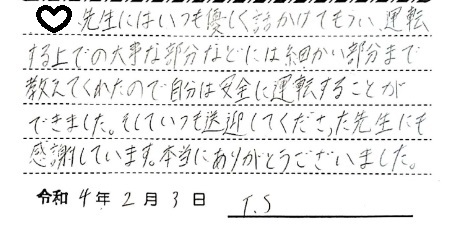 ♡ 先生にはいつも優しく話かけてもらい、運転
する上での大事な部分などには細かい部分まで
教えてくれたので自分は安全に運転することが
できました。そしていつも送迎してくださった先生にも
感謝しています。本当にありがとうございました。
令和 4 年 2 月 3 日 T.S